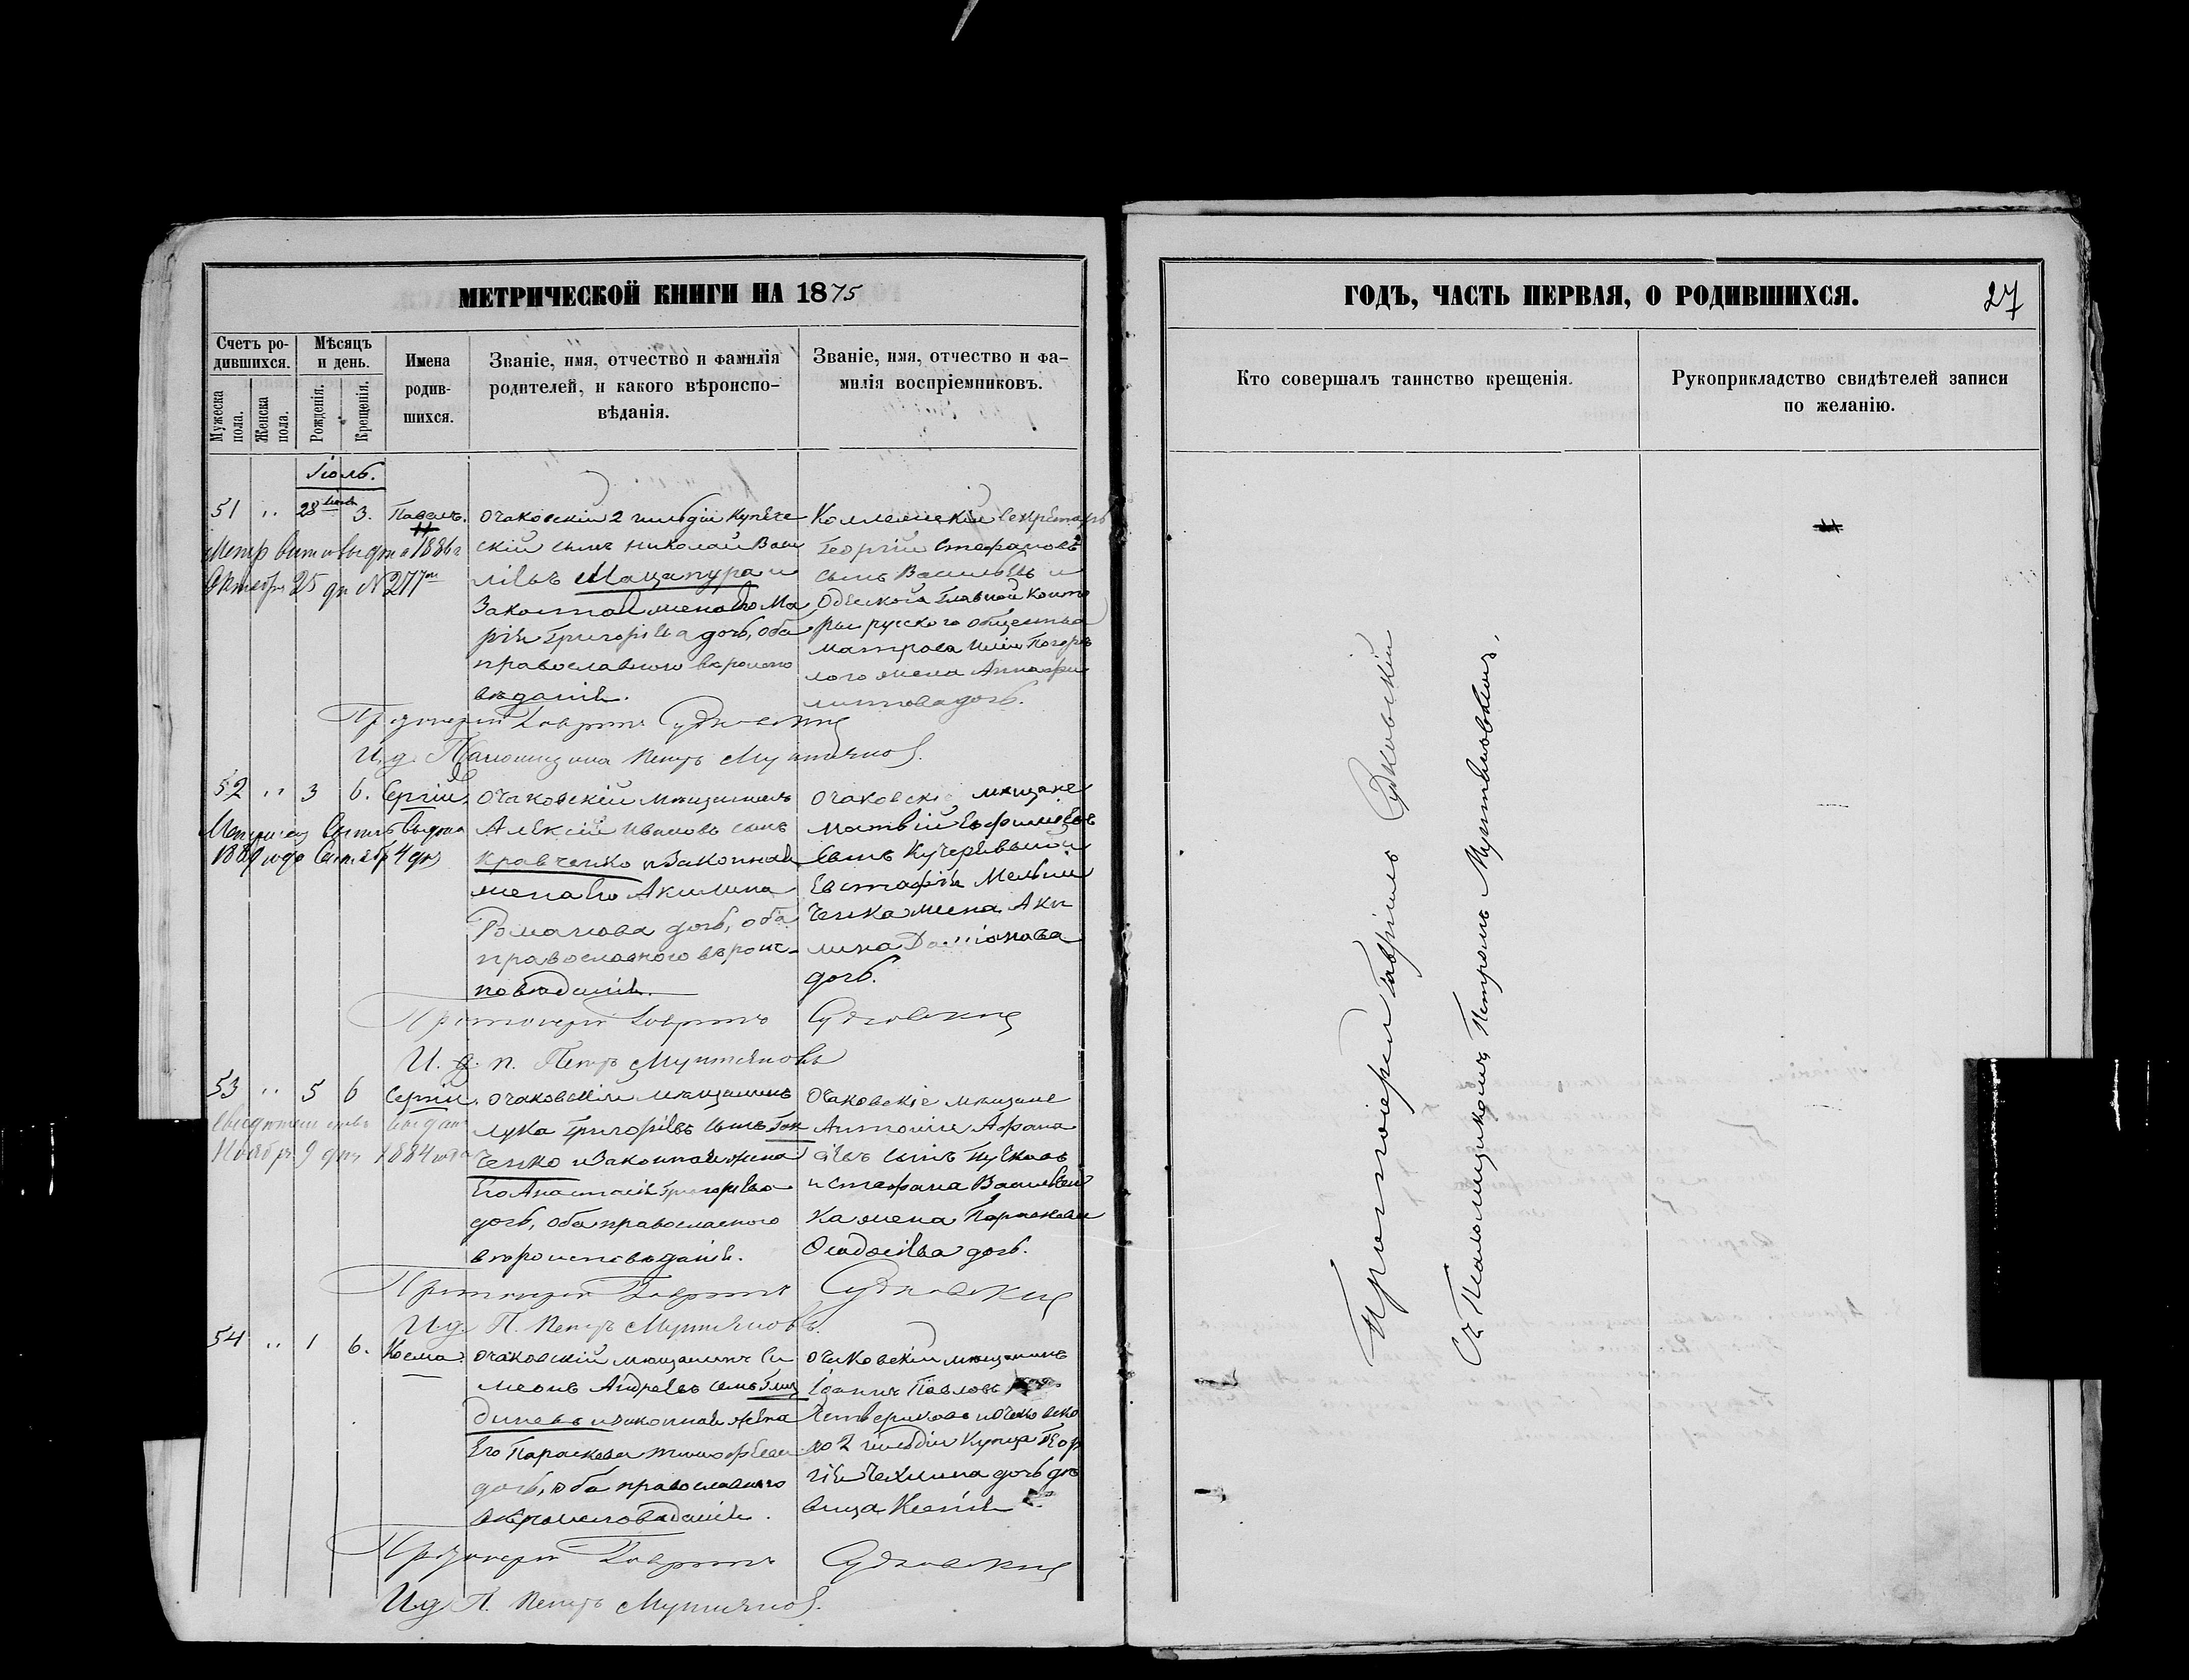 МЕТРИЧЕСКОЙ КНИГИ НА 1875
Счетъ ро-
дившихся.
Мужеска пола.
Женска пола.
Мѣсяцъ
и день.
Рожденія.
Крещенія.
Имена
родив-
шихся.
Званіе, имя, отчество и фамилія
родителей, и какого вѣроиспо-
вѣданія.
Званіе, имя, отчество и фа-
милія воспріемниковъ.
Іюль.
51 " 28 3. Павелъ.
Октября 25 дн №277
Очаковскій 2 гильдіи Купече
скій сынъ Николай Васи
ліевъ Мацапура и
Законная жена его Ма
рія Григоріева дочь, оба
православнаго вѣроиспо
вѣданія.
Коллежскій Секретарь
Георгій Стефановъ
сынъ Васильевъ и
Одесской Главной Конто
ры русскаго общества
дочь.
Протоіерей Гавріилъ Судковскій
И. д. Псаломщика Петръ Мунтяновъ.
52 " 3 6. Сергій.
1889 года Сентября 4 дня
Очаковскій мѣщанинъ
Алексій Ивановъ сынъ
Кравченко и Законная
жена его Акилина
Романова дочь, оба
православнаго вѣроис-
повѣданія.
Очаковскіе мѣщане
Матвій Ефимовъ
сынъ Кучерявый и
Евстафія Мельни
ченка жена Аки
лина
дочь.
Протоіерей Гавріилъ Судковскій
И. д. п. Петръ Мунтяновъ
53 " 5 6 Сергій.
Свидѣтельство выдано
Ноября 9 дня 1884 года
Очаковскій мѣщанинъ
Лука Григоріевъ сынъ Гон
ченко и Законная жена
Его Анастасія Григоріева
дочь, оба православнаго
вѣроисповѣданія.
Очаковскіе мѣщане
Антоній Афана
сіевъ сынъ
и Стефана
ка жена Параскева
дочь.
Протоіерей Гавріилъ Судковскій
И. д. П. Петръ Мунтяновъ.
54 " 1 6. Косма.
Очаковскій мѣщанинъ Си
меонъ Андреевъ сынъ
и законная жена
Его Параскева Тимофеева
дочь, оба православнаго
вѣроисповѣданія.
Очаковскій мѣщанинъ
Іоаннъ Павловъ
Четвериковъ и Очаковска
го 2 гильдіи Купца Геор
гія дочь дѣ
вица Ксенія
Протоіерей Гавріилъ Судковскій
И. д. П. Петръ Мунтяновъ.
ГОДЪ, ЧАСТЬ ПЕРВАЯ, О РОДИВШИХСЯ.
27
Кто совершалъ таинство крещенія.
Рукоприкладство свидѣтелей записи
по желанію.
Протоіерей Гавріилъ Судковскій
Съ Псаломщикомъ Петромъ Мунтяновымъ.